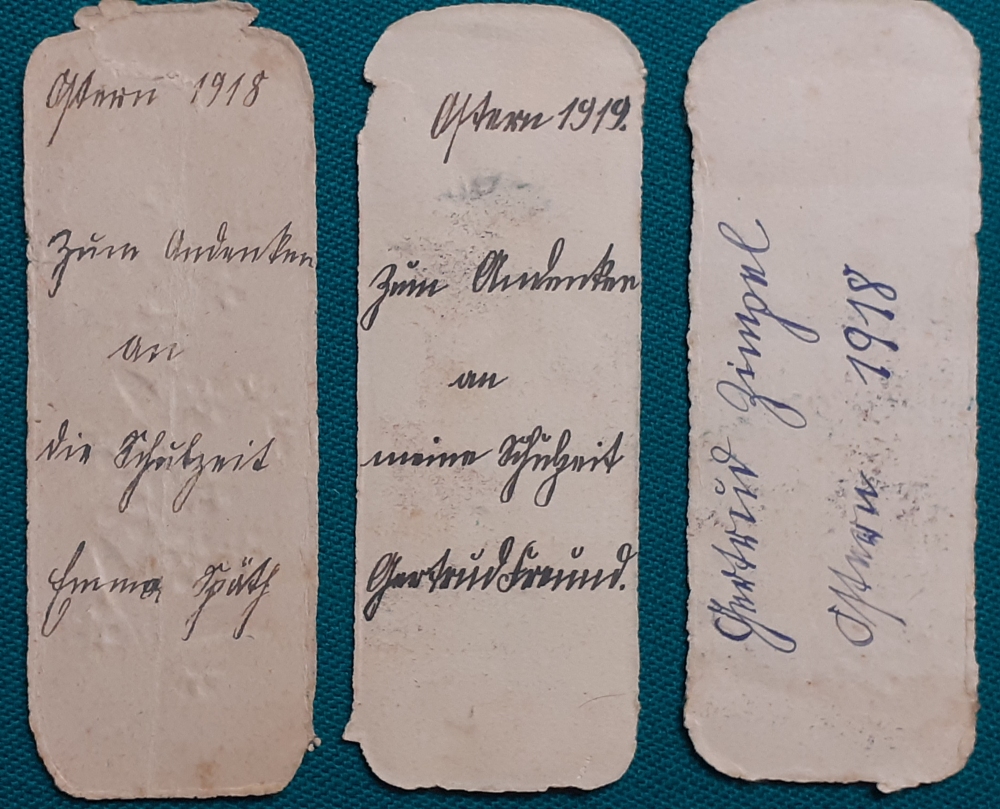 Ostern 1918
Zum Andenken
an
die Schulzeit
Emma Späth
Ostern 1919.
Zum Andenken
an
meine Schulzeit
Gertrud Freund.
Gertrud Zingel
Ostern 1918